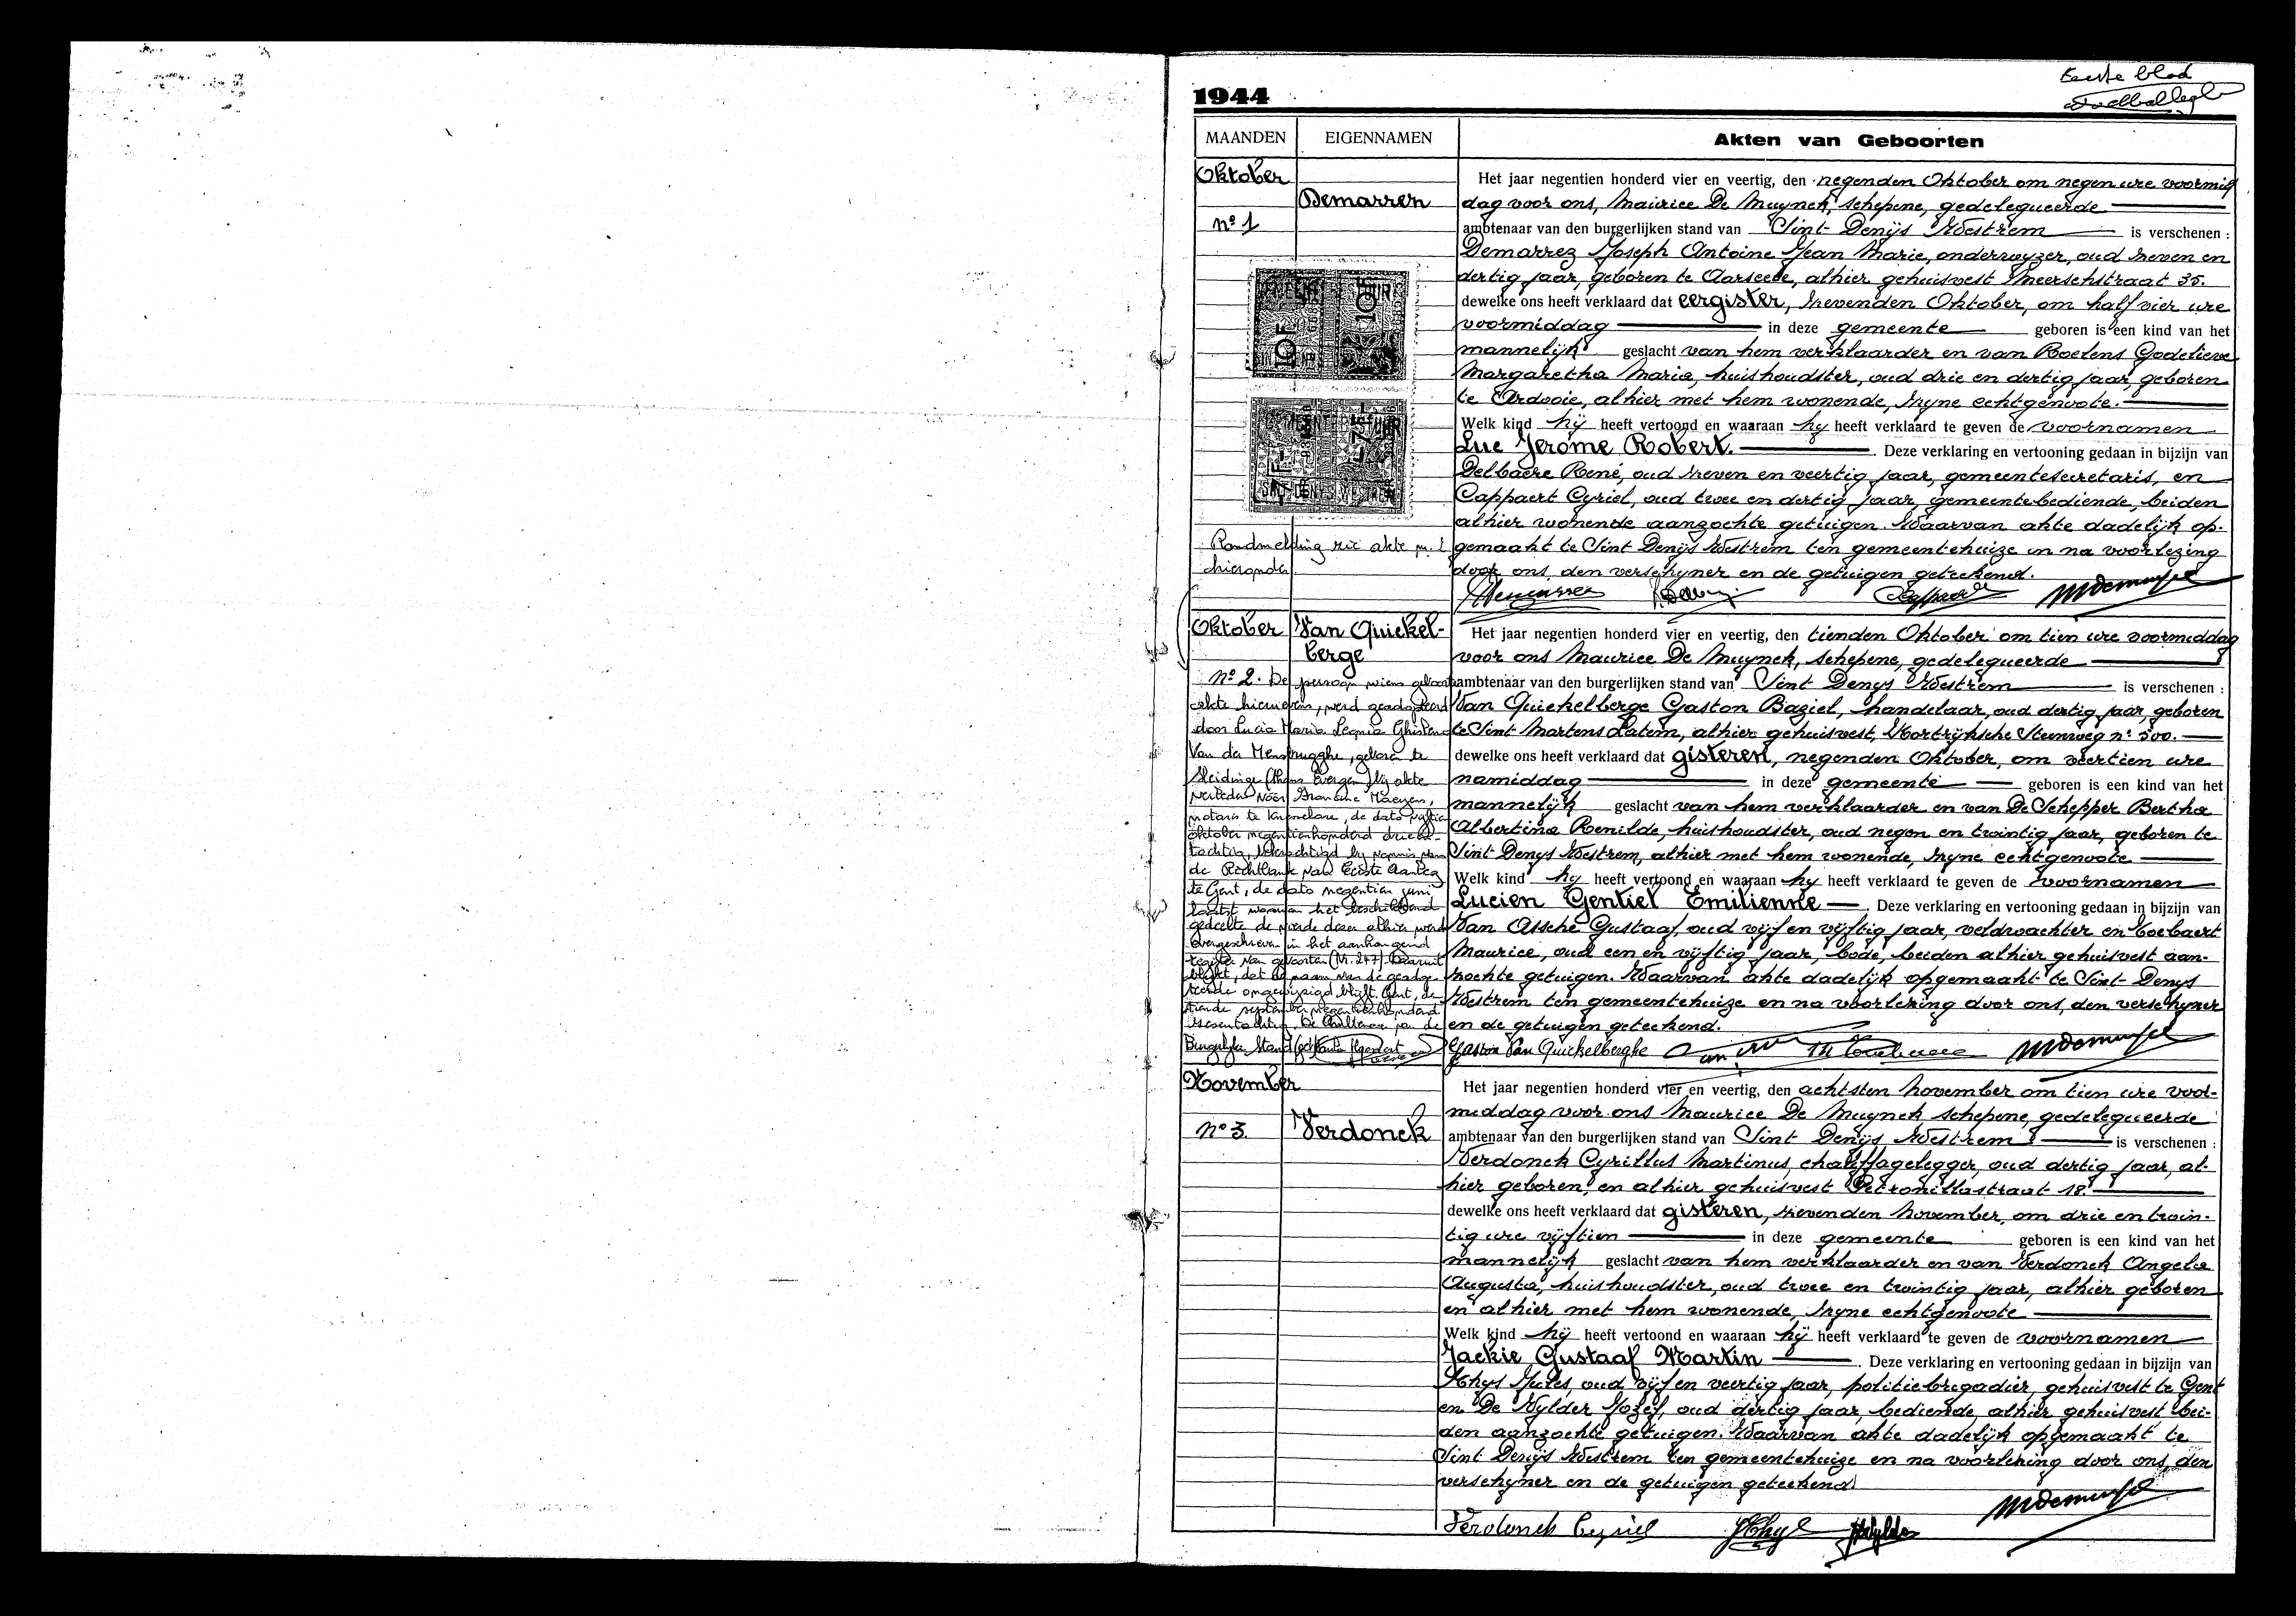 Eerste blad
1944
MAANDEN EIGENNAMEN Akten van Geboorten
Oktober
Demarren
nº 1
Het jaar negentien honderd vier en veertig, den negenden Oktober om negen ure voormid
dag voor ons, Maurice De Muynck, schepene, gedelegueerde
ambtenaar van den burgerlijken stand van Sint Denijs Westrem is verschenen :
Demarrez Joseph Antoine Jean Marie, onderwyzer, oud zeven en
dertig jaar, geboren te Aarseele, alhier gehuisvest Meerschstraat 35.
dewelke ons heeft verklaard dat eergister, zevenden Oktober, om half vier ure
voormiddag in deze gemeente geboren is een kind van het
mannelijk geslacht van hem verklaarder en van Roelens Godelieve
Margaretha Maria, huishoudster, oud drie en dertig jaar, geboren
te Ardooie, alhier met hem wonende, zyne echtgenoote.
Welk kind hij heeft vertoond en waaraan hy heeft verklaard te geven de voornamen
Luc Jerôme Robert. Deze verklaring en vertooning gedaan in bijzijn van
Delbaere René, oud zeven en veertig jaar, gemeentesecretaris, en
Cappaert Cyriel, oud twee en dertig jaar, gemeentebediende, beiden
alhier wonende aanzochte getuigen. Waarvan akte dadelijk op-
gemaakt te Sint Denijs Westrem ten gemeentehuize en na voorlezing
door ons, den verschyner en de getuigen geteekend.
Randmelding zie akte nr. 1
hieronder
Oktober
Van Quickel-
berge
nº 2.
De persoon wiens geboorte
akte hiernevens, werd geadopteerd
door Lucia Maria Leonia Ghislena
Van der Mensbrugghe, geboren te
Sleidinge (thans Evergem) bij akte
verleden voor Francine Maeyens,
notaris te Kaprijke, de dato vijftien
oktober negentienhonderd drieën-
tachtig, bekrachtigd bij vonnis van
de Rechtbank van Eerste Aanleg
te Gent, de dato negentien juni
laatst waarvan het beschikkend
gedeelte de vierde dezer alhier werd
overgeschreven in het aanhangend
register van geboorten (Nr. 247) waaruit
blijkt, dat de naam van de geadop-
teerde ongewijzigd blijft. Gent, de
tiende september negentienhonderd
zesentachtig. De Ambtenaar van de
Burgerlijke Stand
Het jaar negentien honderd vier en veertig, den tienden Oktober om tien ure voormiddag
voor ons Maurice De Muynck, schepene, gedelegueerde
ambtenaar van den burgerlijken stand van Sint Denys Westrem is verschenen :
Van Quickelberge Gaston Baziel, handelaar, oud dertig jaar, geboren
te Sint Martens Latem, alhier gehuisvest, Kortrijksche Steenweg nº 500.
dewelke ons heeft verklaard dat gisteren, negenden Oktober, om veertien ure
namiddag in deze gemeente geboren is een kind van het
mannelijk geslacht van hem verklaarder en van De Schepper Bertha
Albertina Renilde, huishoudster, oud negen en twintig jaar, geboren te
Sint Denys Westrem, alhier met hem wonende, zyne echtgenoote
Welk kind hy heeft vertoond en waaraan hy heeft verklaard te geven de voornamen
Lucien Gentiel Emilienne Deze verklaring en vertooning gedaan in bijzijn van
Van Assche Gustaaf, oud vijf en vijftig jaar, veldwachter en Coebaert
Maurice, oud een en vijftig jaar, bode, beiden alhier gehuisvest aan-
zochte getuigen. Waarvan akte dadelijk opgemaakt te Sint Denys
Westrem ten gemeentehuize en na voorlezing door ons, den verschyner
en de getuigen geteekend.
Gaston Van Quickelberghe
November
nº 3.
Verdonck
Het jaar negentien honderd vier en veertig, den achtsten November om tien ure voor-
middag voor ons Maurice De Muynck schepene, gedelegueerde
ambtenaar van den burgerlijken stand van Sint Denijs Westrem is verschenen :
Verdonck Cyrillus Martinus, chauffagelegger, oud dertig jaar, al-
hier geboren, en alhier gehuisvest Petronillastraat 18.
dewelke ons heeft verklaard dat gisteren, zevenden November, om drie en twin-
tig ure vijftien in deze gemeente geboren is een kind van het
mannelijk geslacht van hem verklaarder en van Verdonck Angela
Augusta, huishoudster, oud twee en twintig jaar, alhier geboren
en alhier met hem wonende, zyne echtgenoote
Welk kind hij heeft vertoond en waaraan hij heeft verklaard te geven de voornamen
Jackie Gustaaf Martin Deze verklaring en vertooning gedaan in bijzijn van
Thys Jules, oud vijf en veertig jaar, politiebrigadier, gehuisvest te Gent
en De Wylder Jozef, oud dertig jaar, bediende, alhier gehuisvest bei-
den aanzochte getuigen. Waarvan akte dadelijk opgemaakt te
Sint Denijs Westrem ten gemeentehuize en na voorlezing door ons, den
verschyner en de getuigen geteekend
Verdonck Cyriel